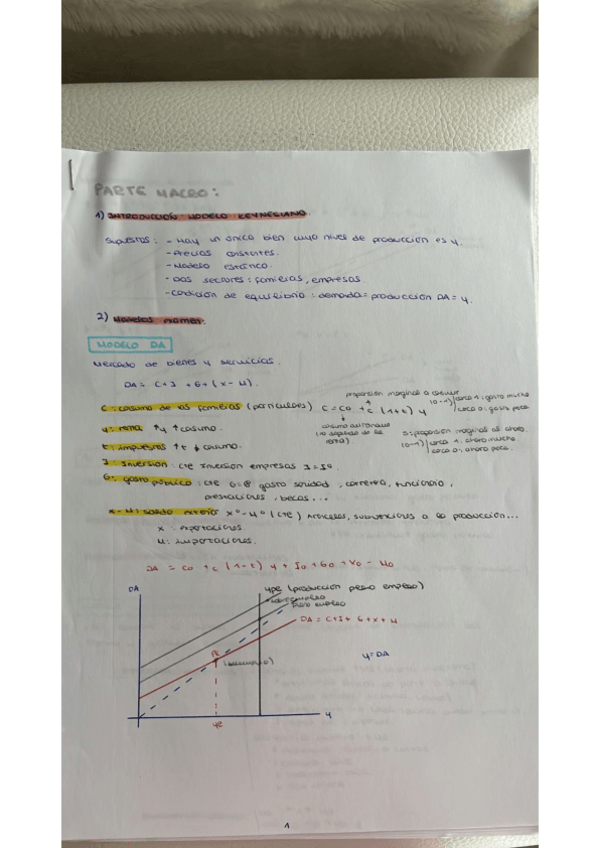 PARTE MACRO:
1) INTRODUCCIÓN MODELO KEYNESIANO.
Supuestos: - Hay un único bien cuyo nivel de producción es y.
- Precios constantes.
- Modelo estático.
- Dos sectores: familias, empresas.
- Condición de equilibrio: demanda = producción DA = y.
2) Modelos examen.
MODELO DA
Mercado de bienes y servicios.
DA = C+I+G+(X-M).
proporción marginal a consumir
C: consumo de las familias (particulares) C = Co + c (1-t) y
(0-1) cerca 1: gasta mucho
cerca 0: gasta poco.
y: renta ↑y ↑consumo.
consumo autónomo
(no depende de la renta)
s: proporción marginal al ahorro.
(0-1) cerca 1: ahorro mucho
cerca 0: ahorro poco.
t: impuestos ↑t ↓ consumo.
I: Inversión: cte Inversión empresas I = Io
G: gasto público: cte gasto sanidad, carretera, funcionario,
prestaciones, becas...
X-M: saldo exterior Xo-Mo (cte) Aranceles, subvenciones a la producción...
X: exportaciones
M: importaciones.
DA = Co + c (1-t) y + Io + Go + Xo - Mo
DA
ype (producción pleno empleo)
pleno empleo
DA = C+I+G+X+M
PE
y = DA
y
1